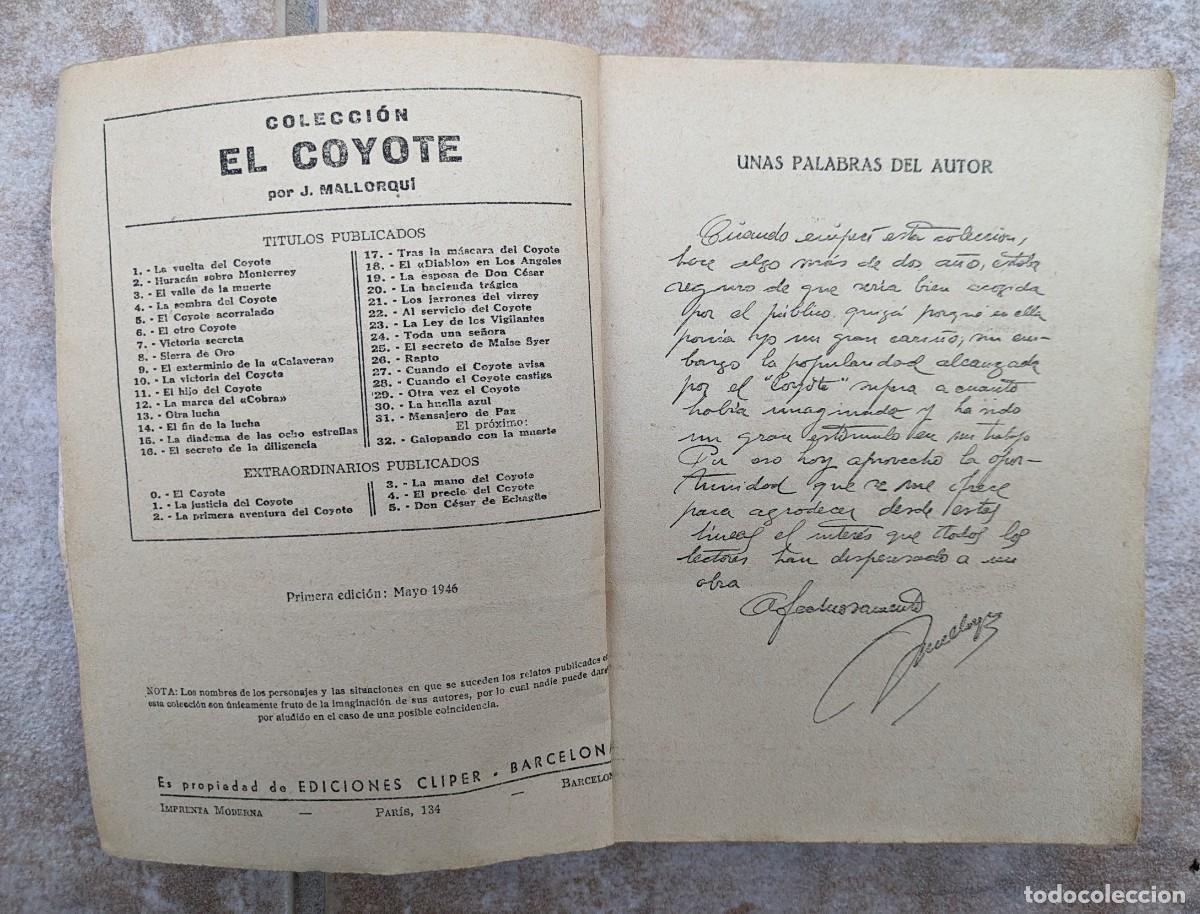 COLECCIÓN
EL COYOTE
por J. MALLORQUÍ
TITULOS PUBLICADOS
1. - La vuelta del Coyote
2. - Huracán sobre Monterrey
3. - El valle de la muerte
4. - La sombra del Coyote
5. - El Coyote acorralado
6. - El otro Coyote
7. - Victoria secreta
8. - Sierra de Oro
9. - El exterminio de la «Calavera»
10. - La victoria del Coyote
11. - El hijo del Coyote
12. - La marca del «Cobra»
13. - Otra lucha
14. - El fin de la lucha
15. - La diadema de las ocho estrellas
16. - El secreto de la diligencia
17. - Tras la máscara del Coyote
18. - El «Diablo» en Los Angeles
19. - La esposa de Don César
20. - La hacienda trágica
21. - Los jarrones del virrey
22. - Al servicio del Coyote
23. - La Ley de los Vigilantes
24. - Toda una señora
25. - El secreto de Maise Syer
26. - Rapto
27. - Cuando el Coyote avisa
28. - Cuando el Coyote castiga
29. - Otra vez el Coyote
30. - La huella azul
31. - Mensajero de Paz
El próximo:
32. - Galopando con la muerte
EXTRAORDINARIOS PUBLICADOS
0. - El Coyote
1. - La justicia del Coyote
2. - La primera aventura del Coyote
3. - La mano del Coyote
4. - El precio del Coyote
5. - Don César de Echagüe
Primera edición: Mayo 1946
NOTA: Los nombres de los personajes y las situaciones en que se suceden los relatos publicados e
esta colección son únicamente fruto de la imaginación de sus autores, por lo cual nadie puede dars
por aludido en el caso de una posible coincidencia.
Es propiedad de EDICIONES CLIPER - BARCELONA
IMPRENTA MODERNA — PARÍS, 134 — BARCELON
UNAS PALABRAS DEL AUTOR
Cuando empecé esta coleccion,
hace algo más de dos año, estaba
seguro de que sería bien acogida
por el público, quizá porqué en ella
ponía yo un gran cariño; sin em-
bargo la popularidad alcanzada
por el "Coyote" supera a cuanto
había imaginado y ha sido
un gran estímulo en mi trabajo
Por eso hoy aprovecho la opor-
tunidad que se me ofrece
para agradecer desde estas
líneas el interés que todos los
lectores han dispensado a mi
obra
Afectuosamente
todocoleccion